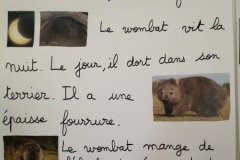 Le wombat vit la
nuit. Le jour, il dort dans son
terrier. Il a une
épaisse fourrure.
Le wombat mange de